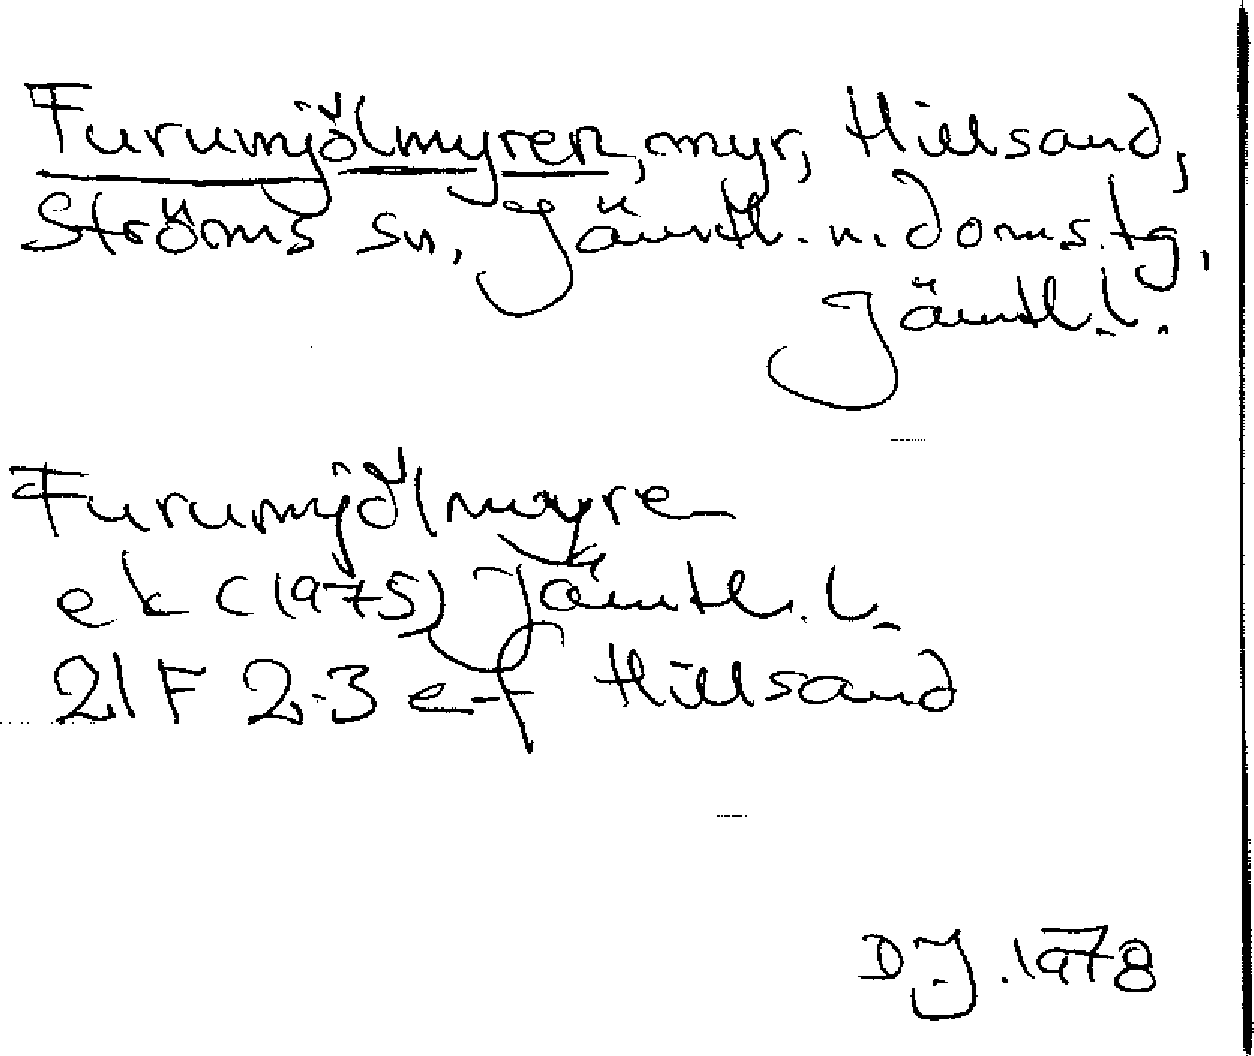 Furumjölmyren, myr, Hillsand,
Ströms sn, Jämtl. n. doms.tg,
Jämtl.l.
Furumjölmyre
ek C (1975) Jämtl.l.
21F 2-3 e-f Hillsand
D.J. 1978